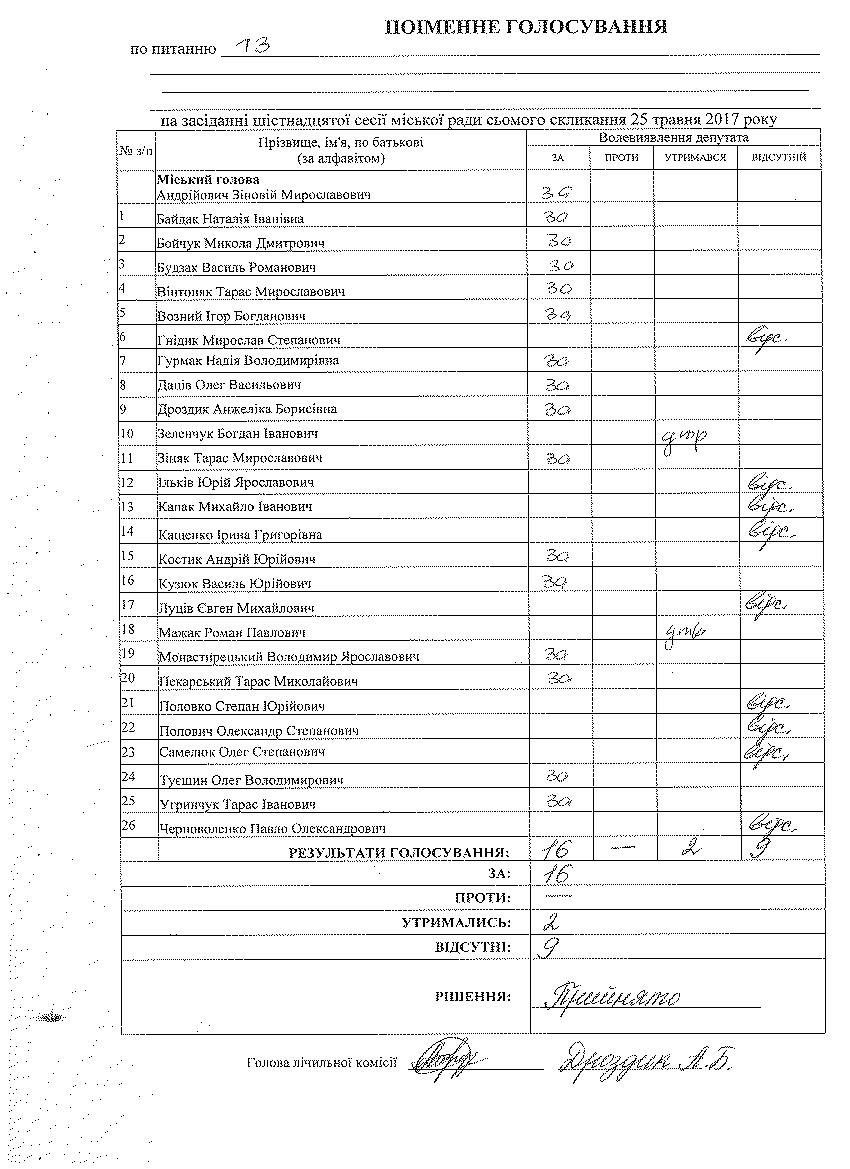 ПОІМЕННЕ ГОЛОСУВАННЯ
по питанню 13
на засіданні шістнадцятої сесії міської ради сьомого скликання 25 травня 2017 року
№ з/п Прізвище, ім'я, по батькові (за алфавітом) Волевиявлення депутата
ЗА ПРОТИ УТРИМАВСЯ ВІДСУТНІЙ
Міський голова
Андрійович Зіновій Мирославович за
1 Байдак Наталія Іванівна за
2 Бойчук Микола Дмитрович за
3 Будзак Василь Романович за
4 Вінтоняк Тарас Мирославович за
5 Возний Ігор Богданович за
6 Гнідик Мирослав Степанович відс.
7 Гурмак Надія Володимирівна за
8 Даців Олег Васильович за
9 Дроздик Анжеліка Борисівна за
10 Зеленчук Богдан Іванович утр
11 Зіняк Тарас Мирославович за
12 Ільків Юрій Ярославович відс.
13 Капак Михайло Іванович відс.
14 Кащенко Ірина Григорівна відс.
15 Костик Андрій Юрійович за
16 Кузюк Василь Юрійович за
17 Луців Євген Михайлович відс.
18 Мажак Роман Павлович утр
19 Монастирецький Володимир Ярославович за
20 Пекарський Тарас Миколайович за
21 Половко Степан Юрійович відс.
22 Попович Олександр Степанович відс.
23 Самелюк Олег Степанович відс.
24 Туєшин Олег Володимирович за
25 Угринчук Тарас Іванович за
26 Черноволенко Павло Олександрович відс.
РЕЗУЛЬТАТИ ГОЛОСУВАННЯ: 16 — 2 9
ЗА: 16
ПРОТИ: —
УТРИМАЛИСЬ: 2
ВІДСУТНІ: 9
РІШЕННЯ: Прийнято
Голова лічильної комісії Дроздик А.Б.